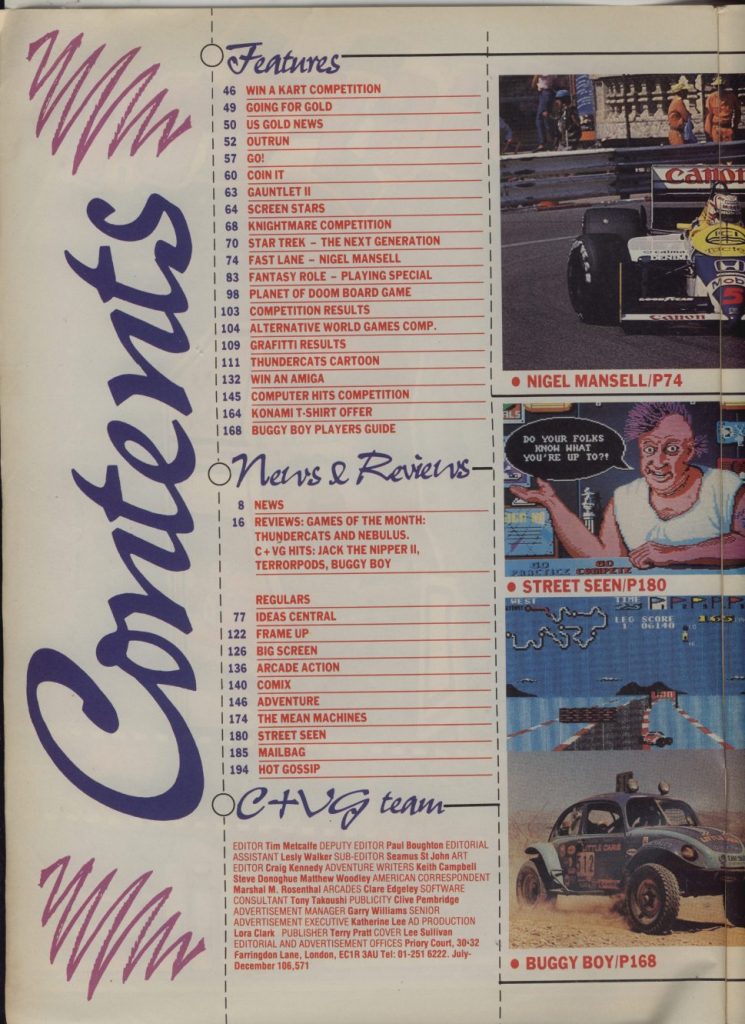 Contents
Features
46 WIN A KART COMPETITION
49 GOING FOR GOLD
50 US GOLD NEWS
52 OUTRUN
57 GO!
60 COIN IT
63 GAUNTLET II
64 SCREEN STARS
68 KNIGHTMARE COMPETITION
70 STAR TREK – THE NEXT GENERATION
74 FAST LANE – NIGEL MANSELL
83 FANTASY ROLE – PLAYING SPECIAL
98 PLANET OF DOOM BOARD GAME
103 COMPETITION RESULTS
104 ALTERNATIVE WORLD GAMES COMP.
109 GRAFITTI RESULTS
111 THUNDERCATS CARTOON
132 WIN AN AMIGA
145 COMPUTER HITS COMPETITION
164 KONAMI T-SHIRT OFFER
168 BUGGY BOY PLAYERS GUIDE
News & Reviews
8 NEWS
16 REVIEWS: GAMES OF THE MONTH:
THUNDERCATS AND NEBULUS.
C+VG HITS: JACK THE NIPPER II,
TERRORPODS, BUGGY BOY
REGULARS
77 IDEAS CENTRAL
122 FRAME UP
126 BIG SCREEN
136 ARCADE ACTION
140 COMIX
146 ADVENTURE
174 THE MEAN MACHINES
180 STREET SEEN
185 MAILBAG
194 HOT GOSSIP
C+VG team
EDITOR Tim Metcalfe DEPUTY EDITOR Paul Boughton EDITORIAL
ASSISTANT Lesly Walker SUB-EDITOR Seamus St John ART
EDITOR Craig Kennedy ADVENTURE WRITERS Keith Campbell
Steve Donoghue Matthew Woodley AMERICAN CORRESPONDENT
Marshal M. Rosenthal ARCADES Clare Edgeley SOFTWARE
CONSULTANT Tony Takoushi PUBLICITY Clive Pembridge
ADVERTISEMENT MANAGER Garry Williams SENIOR
ADVERTISEMENT EXECUTIVE Katherine Lee AD PRODUCTION
Lora Clark PUBLISHER Terry Pratt COVER Lee Sullivan
EDITORIAL AND ADVERTISEMENT OFFICES Priory Court, 30-32
Farringdon Lane, London, EC1R 3AU Tel: 01-251 6222. July-
December 106,571
Canon
GOODYEAR
Mob
5
Canon
• NIGEL MANSELL/P74
DO YOUR FOLKS
KNOW WHAT
YOU'RE UP TO?!
GO
PRACTICE
GO
COMPETE
• STREET SEEN/P180
WEST
TIME
LEG SCORE
1 06140
LITTLE CARS
512
• BUGGY BOY/P168